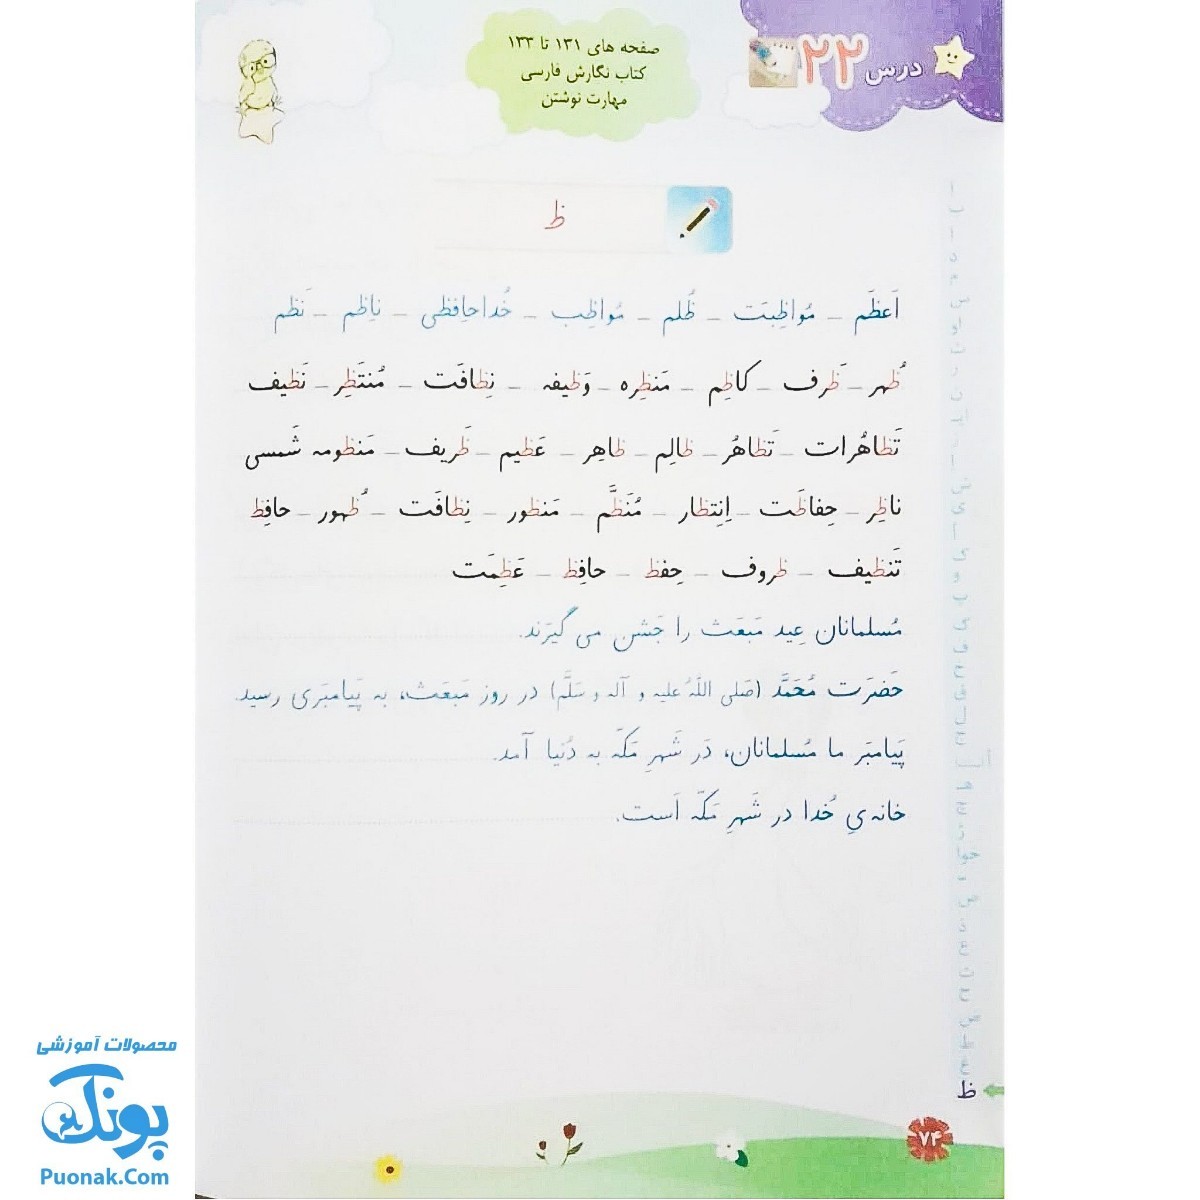 درس ۲۲
صفحه های ۱۳۱ تا ۱۳۳
کتاب نگارش فارسی
مهارت نوشتن
ظ
اَعظَم _ مُواظِبَت _ ظُلم _ مُواظِب _ خُداحافِظی _ ناظِم _ نَظم
ظُهر _ ظَرف _ کاظِم _ مَنظِره _ وَظیفه _ نِظافَت _ مُنتَظِر _ نَظیف
تَظاهُرات _ تَظاهُر _ ظالِم _ ظاهِر _ عَظیم _ ظَریف _ مَنظومه شَمسی
ناظِر _ حِفاظَت _ اِنتِظار _ مُنَظَّم _ مَنظور _ نِظافَت _ ظُهور _ حافِظ
تَنظیف _ ظروف _ حِفظ _ حافِظ _ عَظِمَت
مُسلمانان عِید مَبعَث را جَشن می گیرَند.
حَضرَت مُحَمَّد (صَلی اللّهُ علیه و آله و سَلَّم) در روز مَبعَث، به پَیامبَری رسید.
پَیامبَر ما مُسلمانان، دَر شَهرِ مَکّه به دُنیا آمد.
خانه‌یِ خُدا در شَهرِ مَکّه اَست.
ظ
۷۴
محصولات آموزشی
پونک
Puonak.Com